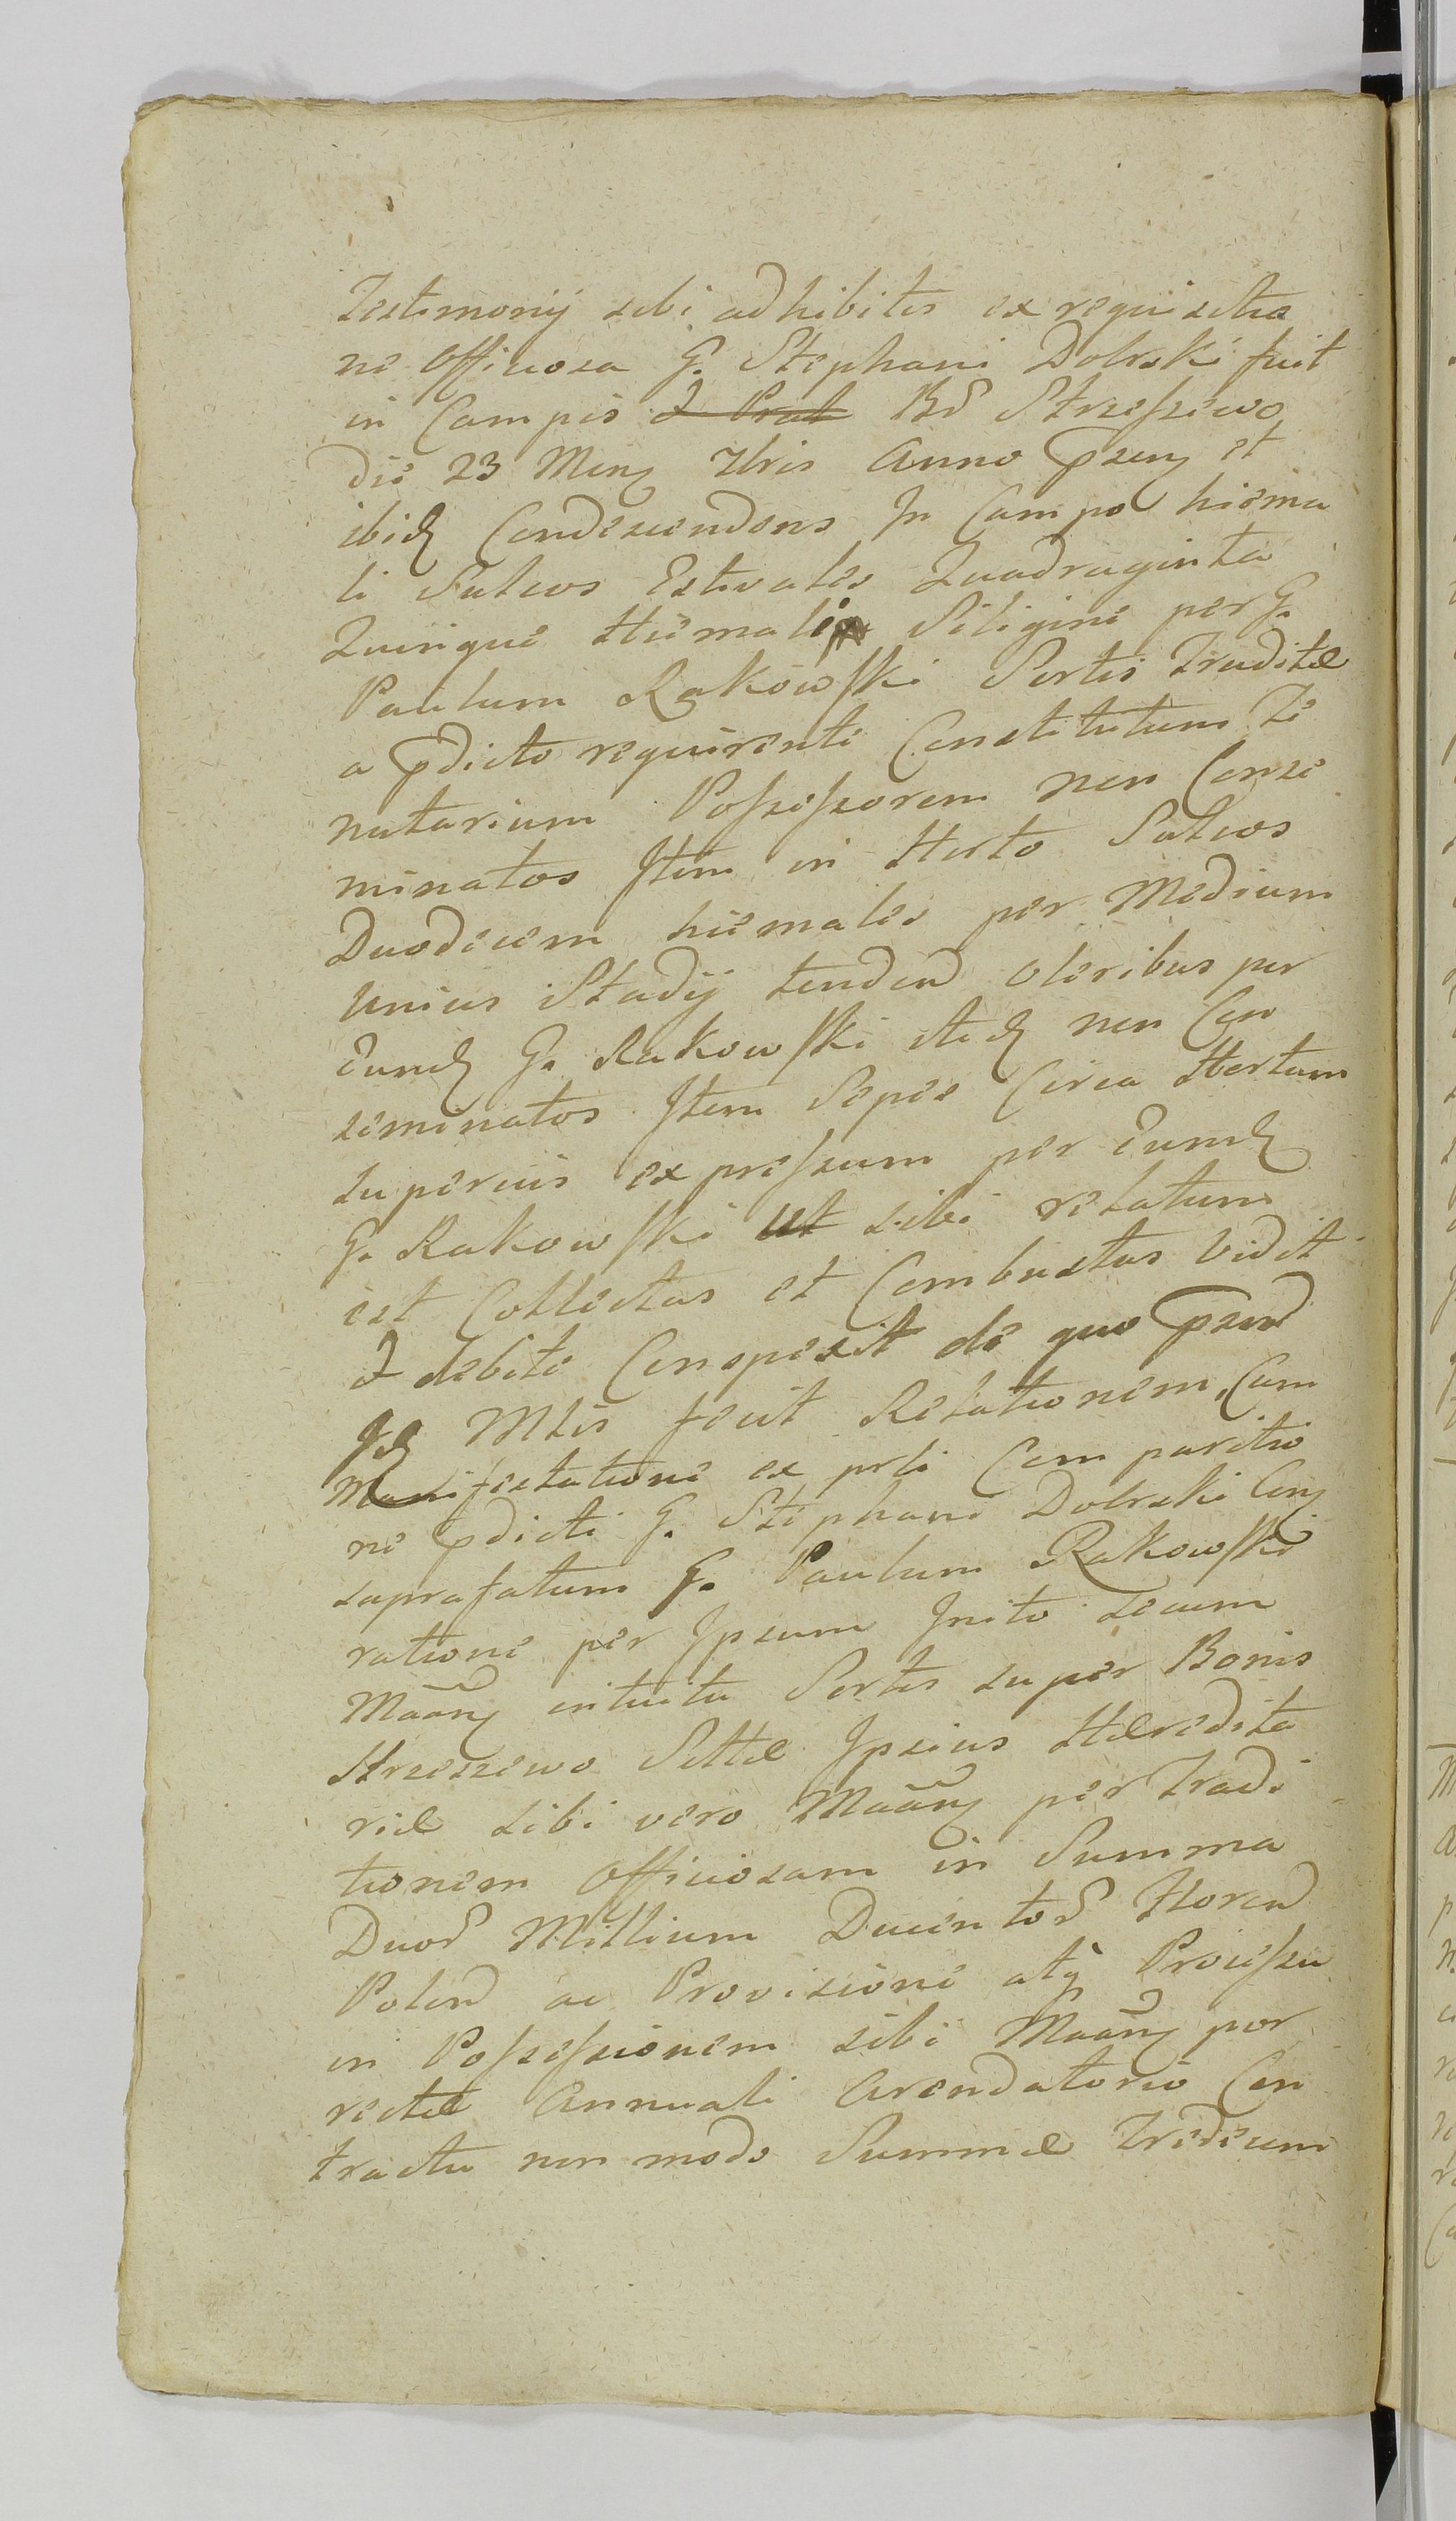 Testimonij sibi adhibitis ex requisitio
ne Officiosa G. Stephani Dobrski fuit
in Campis & Prat Bd Strzeszewo
die 23 Mens 7bris Anno Psens et
ibid Condescendens In Campo hiema
li Sulcos Estivales Quadraginta
Quinque Hiemali Siligine per G.
Paulum Rakowski Sortis Traditæ
a pdicto requirenti Constitutum Te
nutarium Possessorem non Conse
minatos Item in Horto Sulcos
Duodecem hiemales per Medium
Unius Stadij tenden Oleribus per
Eund G. Rakowski itid non Con
seminatos Item Sepes Circa Hortum
superius expressum per Eund
G. Rakowski ut sibi relatum
est Collectas et Combustas Vidit
& debite Conspexit de quo Psend
Id Mtis fecit Relationem Cum
Manifestatione ex prti Comparitio
ne pdicti G. Stephani Dobrski Con
suprafatum G. Paulum Rakowski
ratione per Ipsum Inito secum
Maans intuitu Sortis super Bonis
Strzeszewo Sittæ Ipsius Hæredita
riæ sibi vero Maans per Tradi
tionem Officiosam in Summa
Duor Millium Ducentor Floren
Polon ac Provisione atq Processu
in Possessionem sibi Maans por
rectæ Annuali Arendatorio Con
tractu non modo Summæ Tridecim